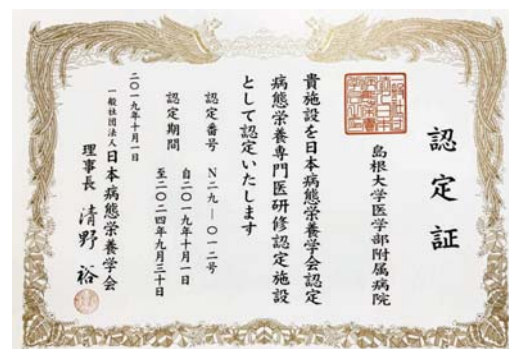 認定証
島根大学医学部附属病院
貴施設を日本病態栄養学会認定
病態栄養専門医研修認定施設
として認定いたします
認定番号　N二九―〇一二号
認定期間　自二〇一九年十月一日
至二〇二四年九月三十日
二〇一九年十月一日
一般社団法人日本病態栄養学会
理事長　清野　裕